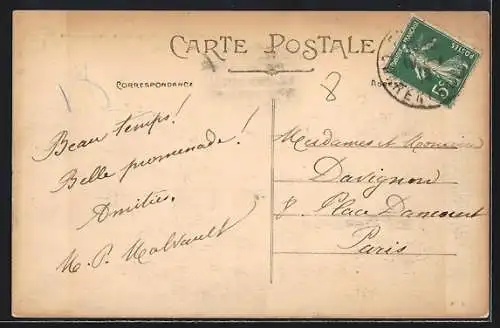 CARTE POSTALE
CORRESPONDANCE
8
Beau temps!
Belle promenade!
Amitiés.
M. P. Malvault
Mesdames et Monsieur
Davignon
8 Place Dancourt
Paris
POSTES
5